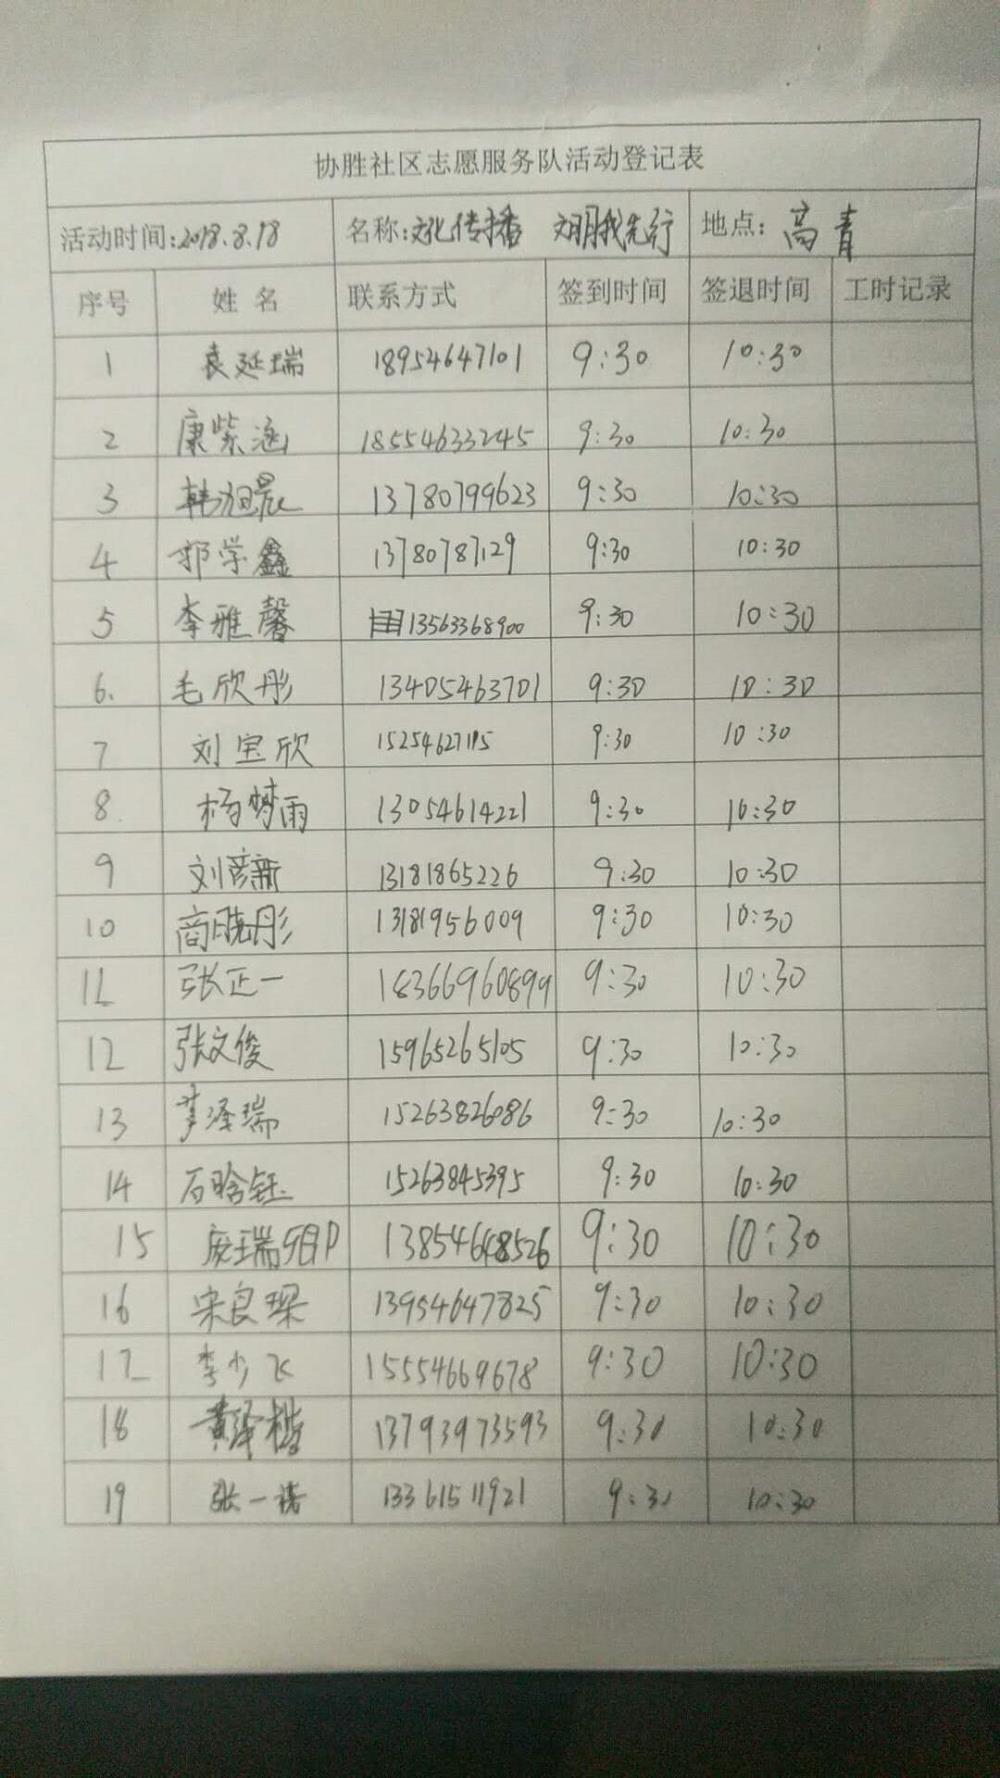 协胜社区志愿服务队活动登记表
活动时间:2018.8.18 名称:文化传播 文明我先行 地点:高青
序号 姓名 联系方式 签到时间 签退时间 工时记录
1 袁延瑞 18954647101 9:30 10:30
2 康紫涵 18554633245 9:30 10:30
3 韩旭晨 13780799623 9:30 10:30
4 郭学鑫 13780787129 9:30 10:30
5 李雅馨 13563368900 9:30 10:30
6. 毛欣彤 13405463701 9:30 10:30
7 刘宝欣 15254627115 9:30 10:30
8. 杨梦雨 13054614221 9:30 10:30
9 刘彦新 13181865226 9:30 10:30
10 商晓彤 13181956009 9:30 10:30
11 张正一 18366960899 9:30 10:30
12 张文俊 15965265105 9:30 10:30
13 泽瑞 15263826086 9:30 10:30
14 石晗钰 15263845395 9:30 10:30
15 庞瑞 13854648526 9:30 10:30
16 宋良琛 13954647825 9:30 10:30
17 李少飞 15554669678 9:30 10:30
18 黄泽楷 13793973593 9:30 10:30
19 张一诺 13361511921 9:30 10:30